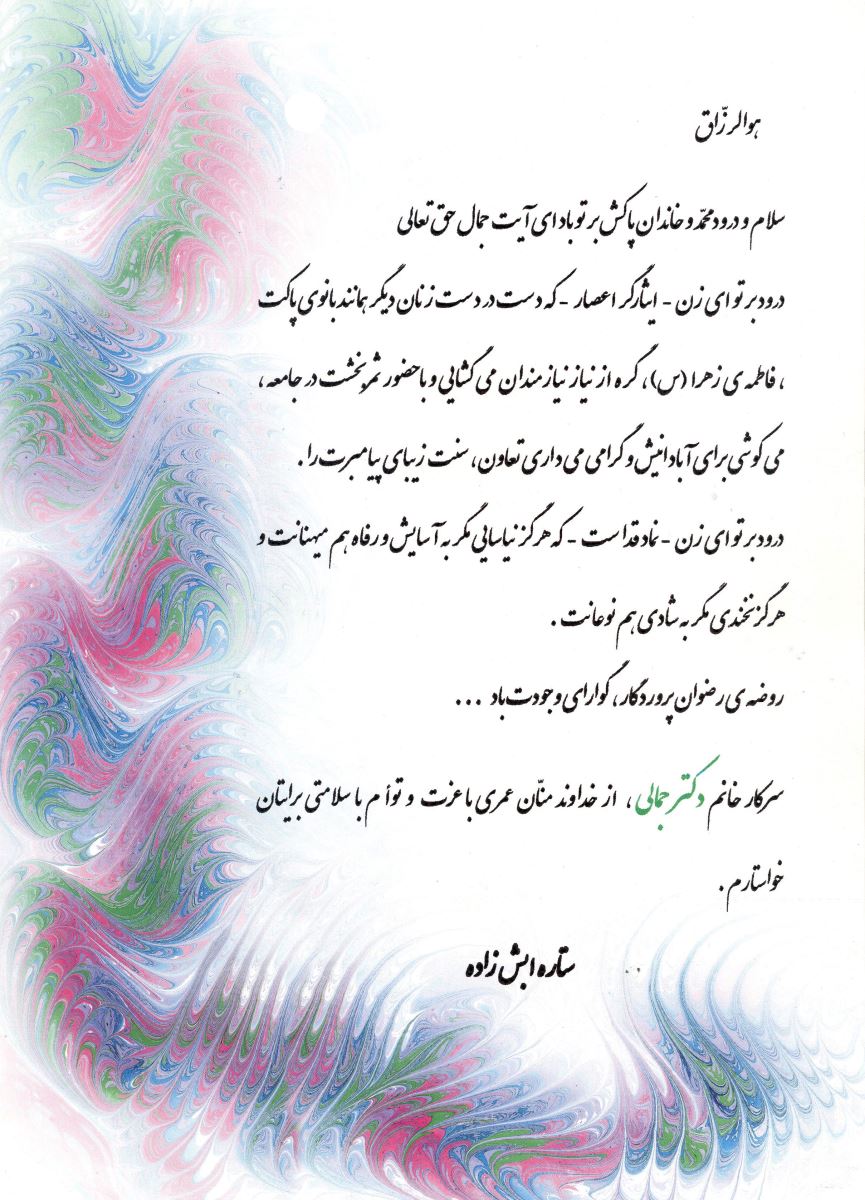 هوالرزّاق
سلام و درود محمّد و خاندان پاکش بر تو باد ای آیت جمال حق تعالی
درود بر تو ای زن - ایثارگر اعصار - که دست در دست زنان دیگر همانند بانوی پاکت
، فاطمه ی زهرا (س)، گره از نیاز نیازمندان می گشایی و با حضور ثمربخشت در جامعه ،
می کوشی برای آبادانیش و گرامی می داری تعاون، سنت زیبای پیامبرت را .
درود بر تو ای زن - نماد قداست - که هرگز نیاسایی مگر به آسایش و رفاه هم میهنانت و
هرگز نخندی مگر به شادی هم نوعانت .
روضه ی رضوان پروردگار، گوارای وجودت باد ...
سرکار خانم دکتر جمالی ، از خداوند منّان عمری با عزت و توأم با سلامتی برایتان
خواستارم .
ستاره ابش زاده